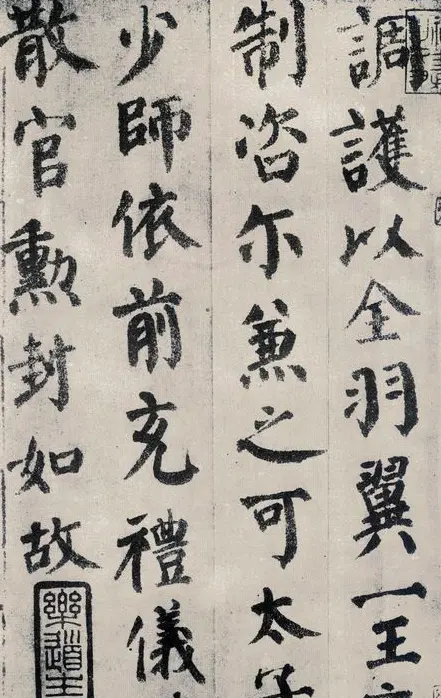 調護以全羽翼一王
制咨尔兼之可太
少師依前充禮儀
散官勳封如故
樂道主